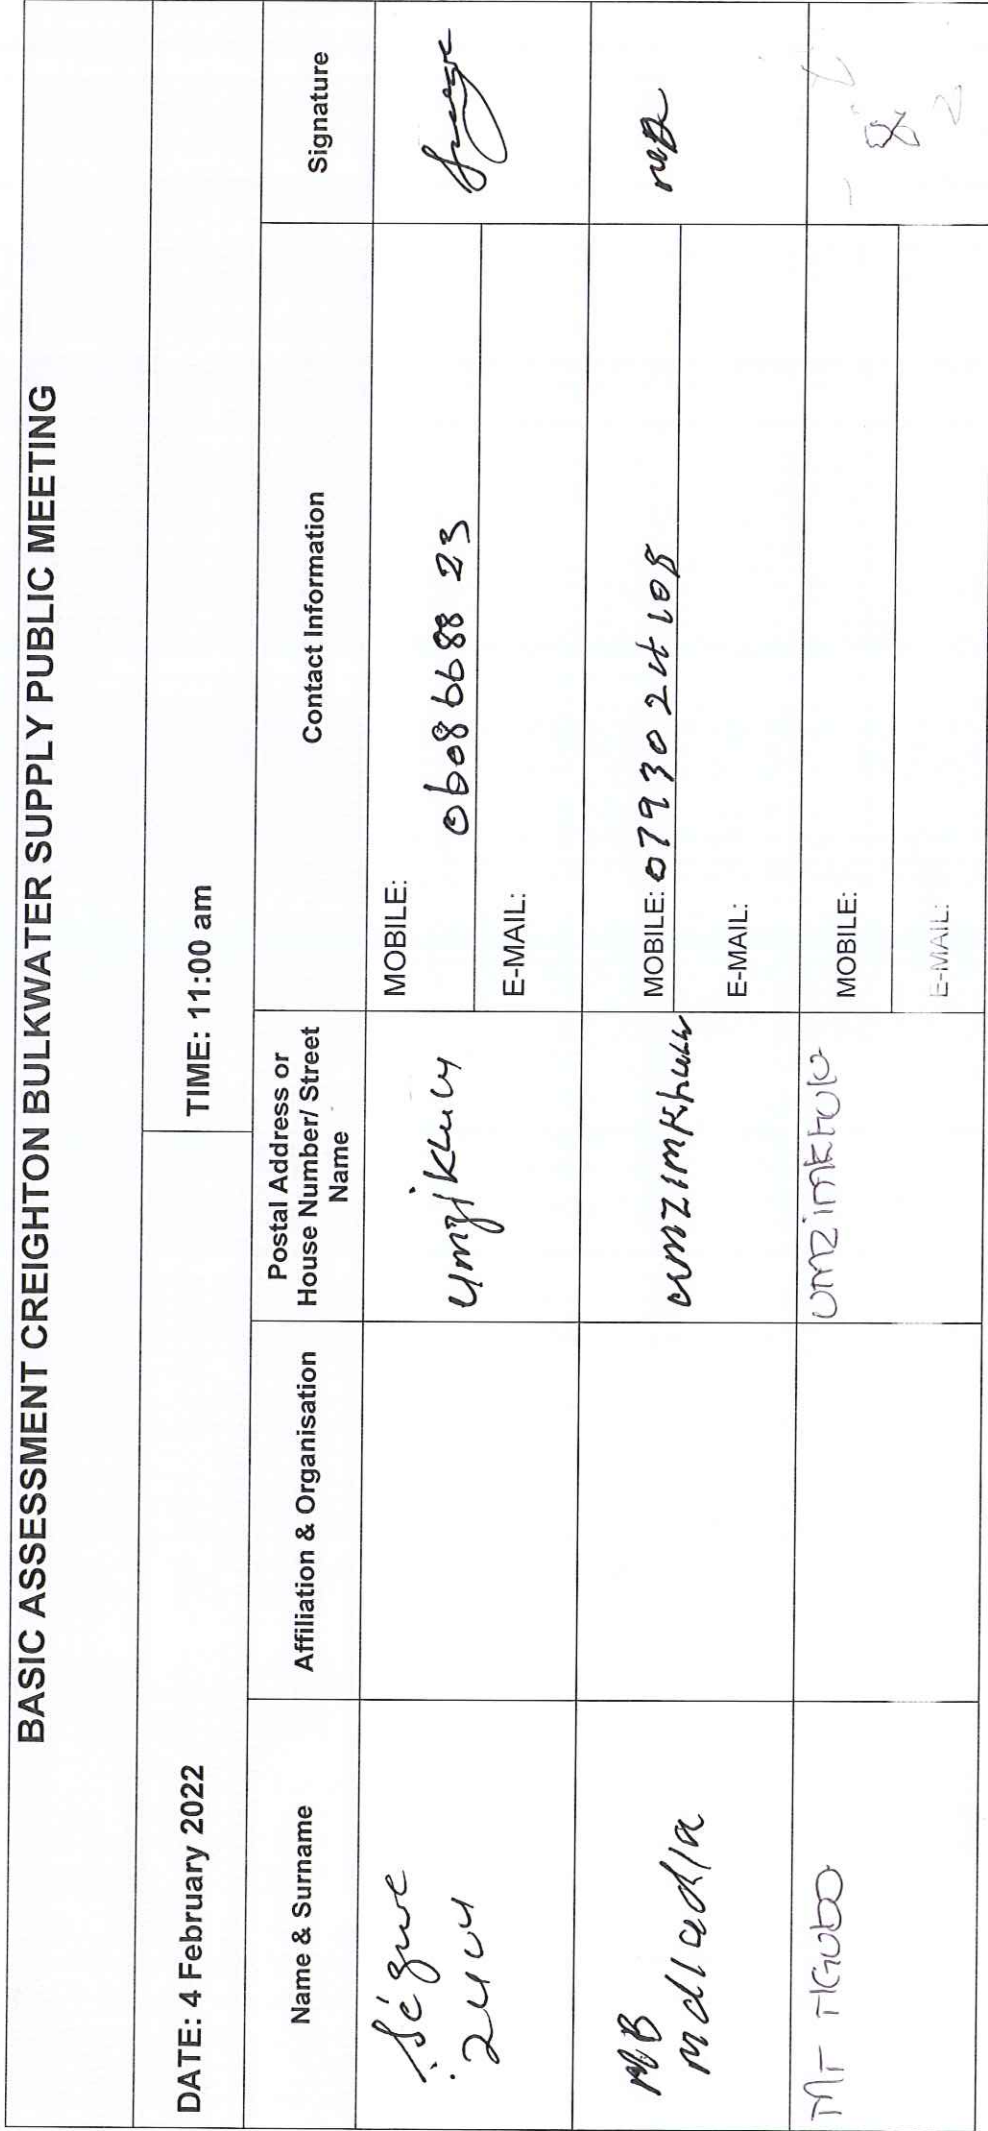 BASIC ASSESSMENT CREIGHTON BULKWATER SUPPLY PUBLIC MEETING
DATE: 4 February 2022
TIME: 11:00 am
Name & Surname
Affiliation & Organisation
Postal Address or
House Number/ Street
Name
Contact Information
Signature
MOBILE:
E-MAIL:
MB
umzimkhulu
MOBILE: 079 30 24 108
E-MAIL:
umzimkhulu
MOBILE:
E-MAIL: